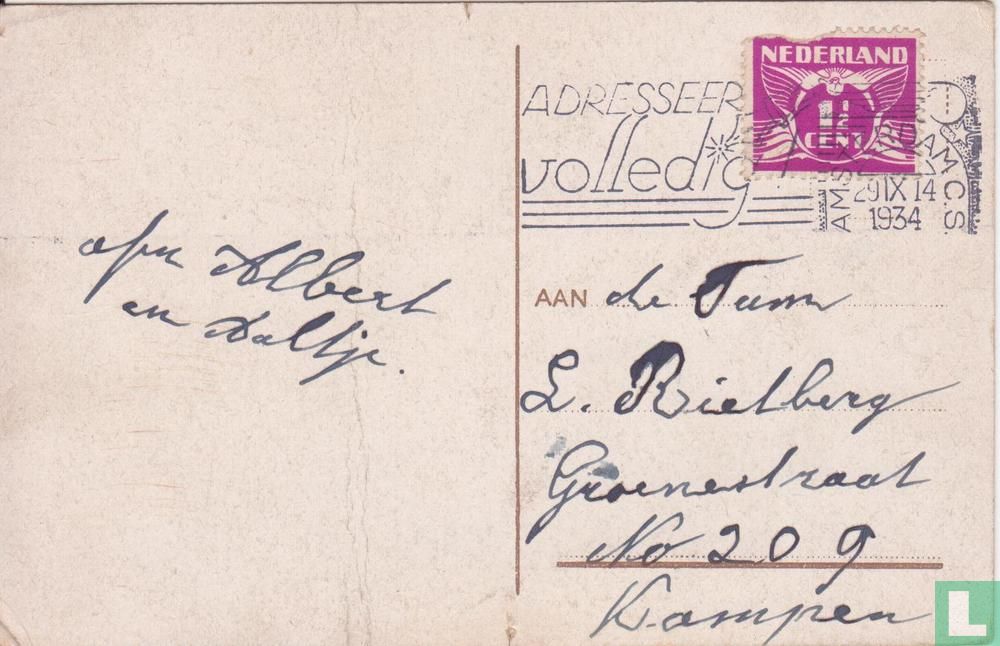 Albert
en Aaltje.
NEDERLAND
1½
CENT
ADRESSEER
volledig
AMSTERDAM C.S.
29 IX 14
1934
AAN de Fam
L. Rietberg
Groenestraat
No 209
Kampen
L